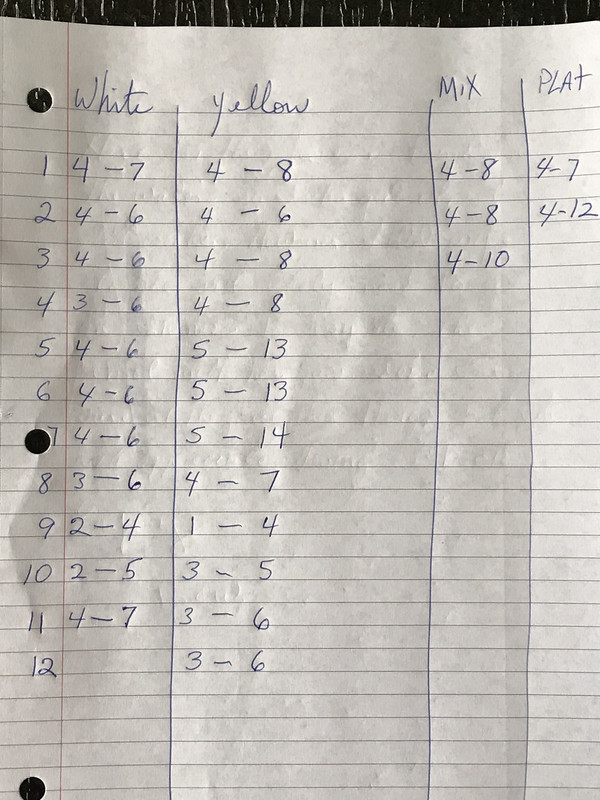 White yellow MIX PLAT
1 4-7 4-8 4-8 4-7
2 4-6 4-6 4-8 4-12
3 4-6 4-8 4-10
4 3-6 4-8
5 4-6 5-13
6 4-6 5-13
7 4-6 5-14
8 3-6 4-7
9 2-4 1-4
10 2-5 3-5
11 4-7 3-6
12 3-6